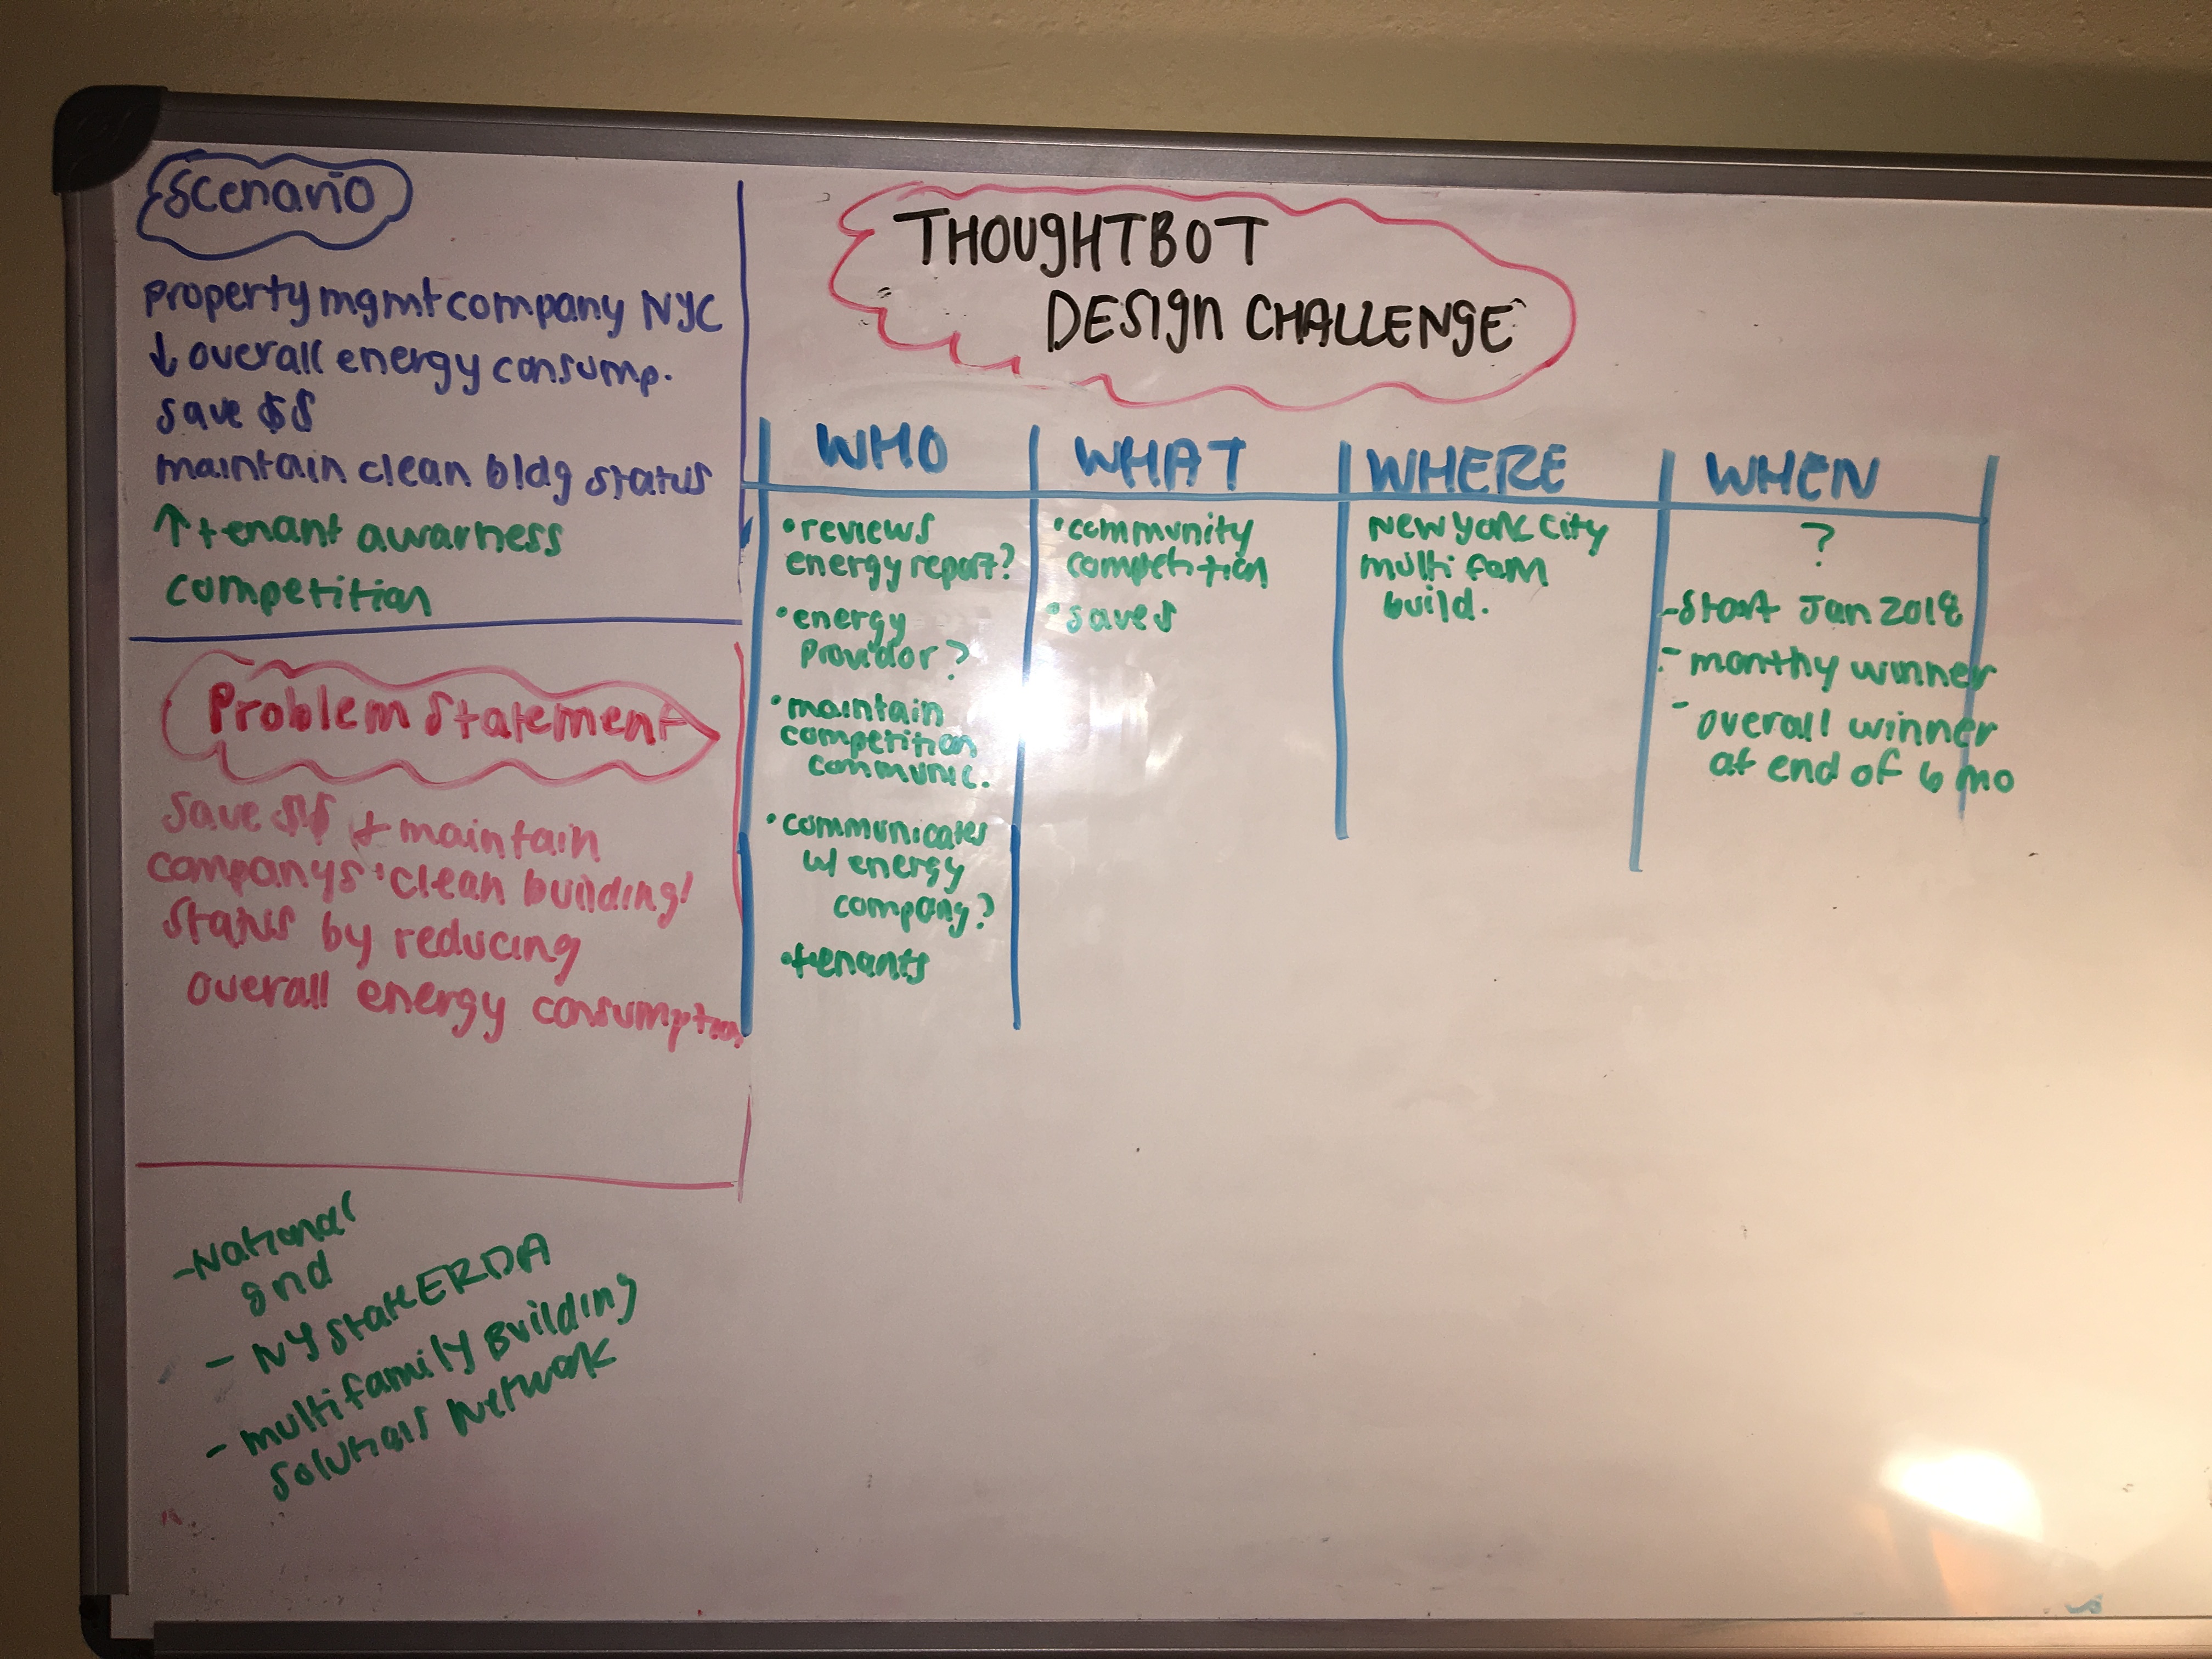 Scenario
property mgmt company NYC
↓ overall energy consump.
save $$
maintain clean bldg status
↑ tenant awarness
competition
Problem Statement
save $$ + maintain
companys 'clean building'
status by reducing
overall energy consumption
-National
grid
- NY State ERDA
- multifamily Building
Solutions Network
THOUGHTBOT
DESIGN CHALLENGE
WHO
• reviews
energy report?
• energy
providor?
• maintain
competition
communic.
• communicates
w/ energy
company?
• tenants
WHAT
• community
competition
• save $
WHERE
New York City
multi fam
build.
WHEN
?
- Start Jan 2018
- monthy winner
- overall winner
at end of 6 mo